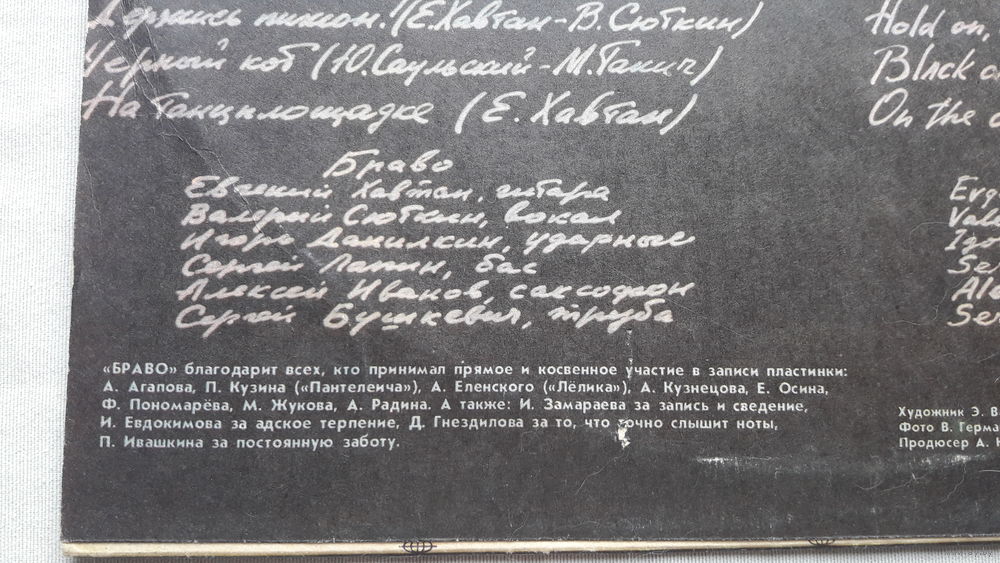 Держись пижон! (Е. Хавтан-В. Сюткин)
Hold on,
Черный кот (Ю. Саульский-М. Танич)
Black
На танцплощадке (Е. Хавтан)
On the
Браво
Евгений Хавтан, гитара
Валерий Сюткин, вокал
Игорь Данилкин, ударные
Сергей Лапин, бас
Алексей Иванов, саксофон
Сергей Бушкевич, труба
Evg
Vale
Igo
Ser
Ale
Ser
«БРАВО» благодарит всех, кто принимал прямое и косвенное участие в записи пластинки:
А. Агапова, П. Кузина («Пантелеича»), А. Еленского («Лёлика»), А. Кузнецова, Е. Осина,
Ф. Пономарёва, М. Жукова, А. Радина. А также: И. Замараева за запись и сведение,
И. Евдокимова за адское терпение, Д. Гнездилова за то, что точно слышит ноты,
П. Ивашкина за постоянную заботу.
Художник Э. В
Фото В. Герма
Продюсер А.